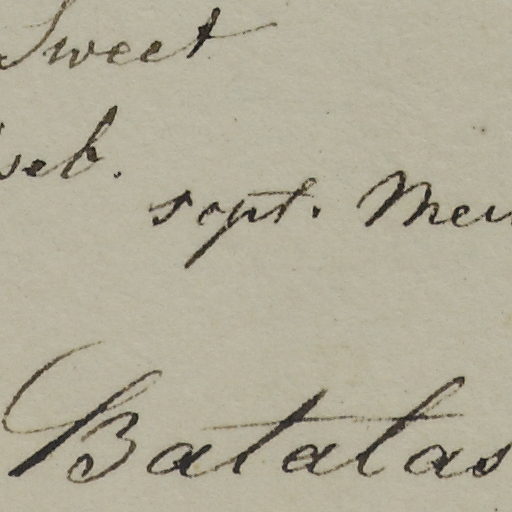 Sweet
seb.
sept. Mei
Batatas